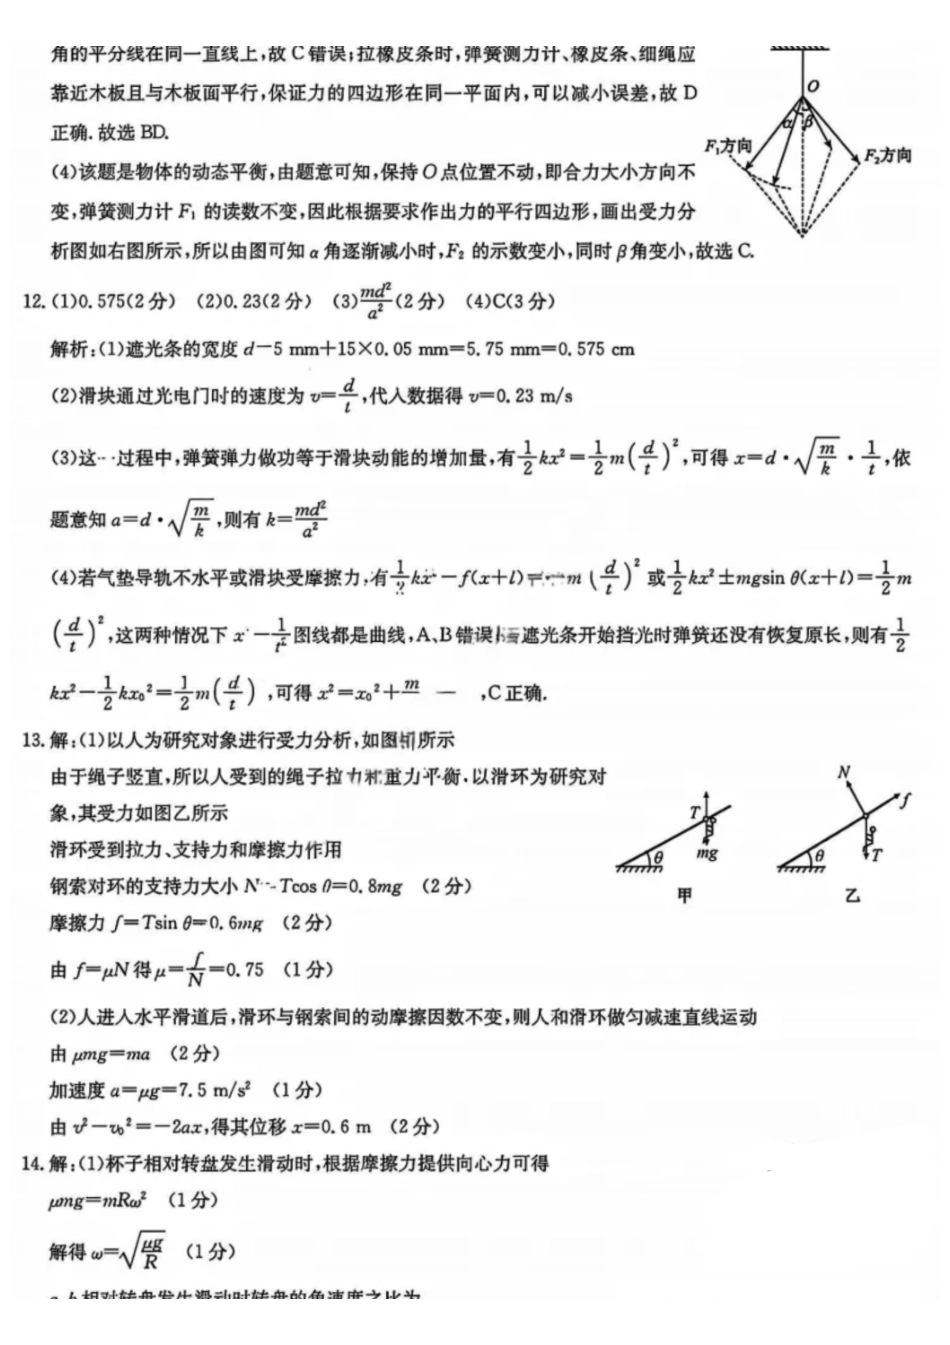 角的平分线在同一直线上,故C错误;拉橡皮条时,弹簧测力计、橡皮条、细绳应
靠近木板且与木板面平行,保证力的四边形在同一平面内,可以减小误差,故D
正确.故选BD.
(4)该题是物体的动态平衡,由题意可知,保持O点位置不动,即合力大小方向不
变,弹簧测力计F₁的读数不变,因此根据要求作出力的平行四边形,画出受力分
析图如右图所示,所以由图可知α角逐渐减小时,F₂的示数变小,同时β角变小,故选C.
O
α β
F₁方向
F₂方向
12.(1)0.575(2分) (2)0.23(2分) (3)md²/a²(2分) (4)C(3分)
解析:(1)遮光条的宽度d=5 mm+15×0.05 mm=5.75 mm=0.575 cm
(2)滑块通过光电门时的速度为v=d/t,代入数据得v=0.23 m/s
(3)这一过程中,弹簧弹力做功等于滑块动能的增加量,有1/2kx²=1/2m(d/t)²,可得x=d·√(m/k)·1/t,依
题意知a=d·√(m/k),则有k=md²/a²
(4)若气垫导轨不水平或滑块受摩擦力,有1/2kx²-f(x+l)=m(d/t)²或1/2kx²±mgsin θ(x+l)=1/2m
(d/t)²,这两种情况下x-1/t图线都是曲线,A、B错误;遮光条开始挡光时弹簧还没有恢复原长,则有1/2
kx²-1/2kx₀²=1/2m(d/t),可得x²=x₀²+m ,C正确.
13.解:(1)以人为研究对象进行受力分析,如图甲所示
由于绳子竖直,所以人受到的绳子拉力和重力平衡.以滑环为研究对
象,其受力如图乙所示
滑环受到拉力、支持力和摩擦力作用
钢索对环的支持力大小N=Tcos θ=0.8mg (2分)
摩擦力f=Tsin θ=0.6mg (2分)
由f=μN得μ=f/N=0.75 (1分)
T
θ
mg
甲
N
f
θ
T
乙
(2)人进入水平滑道后,滑环与钢索间的动摩擦因数不变,则人和滑环做匀减速直线运动
由μmg=ma (2分)
加速度a=μg=7.5 m/s² (1分)
由v²-v₀²=-2ax,得其位移x=0.6 m (2分)
14.解:(1)杯子相对转盘发生滑动时,根据摩擦力提供向心力可得
μmg=mRω² (1分)
解得ω=√(μg/R) (1分)
a、b相对转盘发生滑动时转盘的角速度之比为